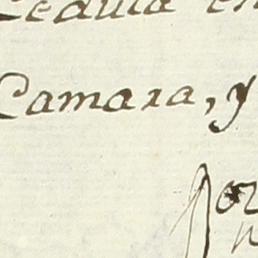 Cedula en
Camara, y